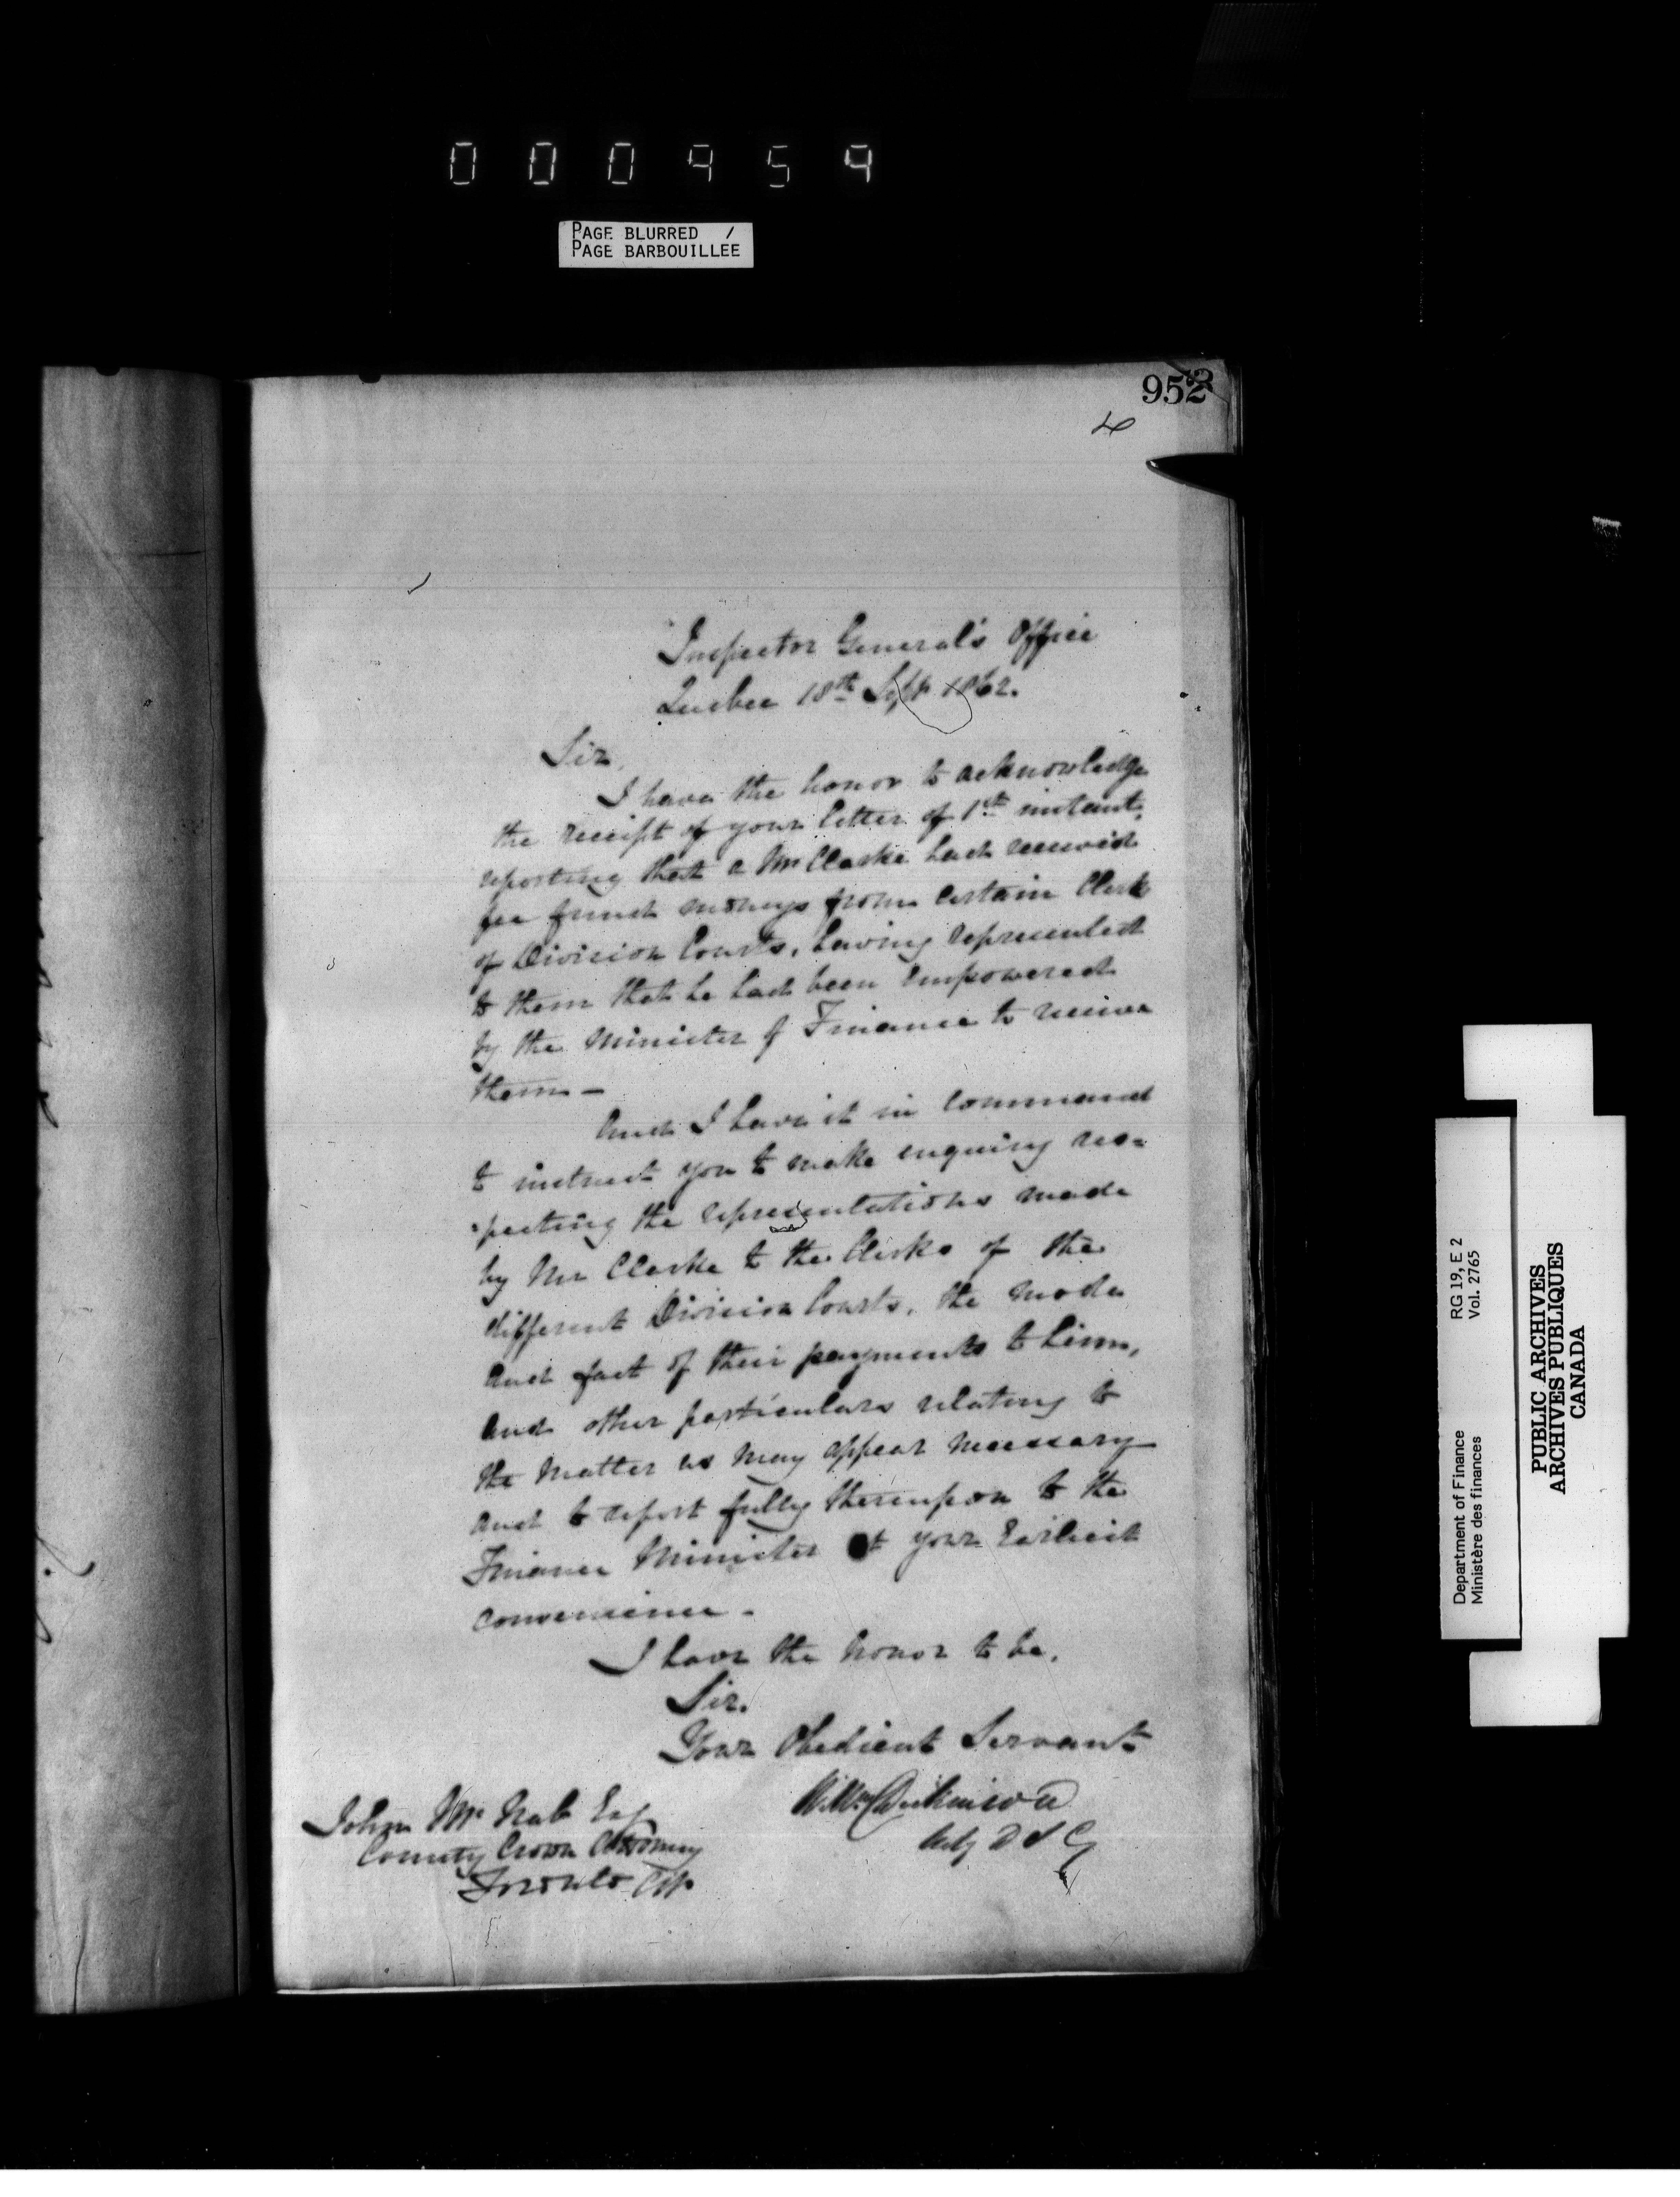 000954
PAGE BLURRED /
PAGE BARBOUILLEE
952
Inspector General's Office
Quebec 18th Sept 1862.
Sir,
I have the honor to acknowledge
the receipt of your letter of 1st instant,
reporting that a Mr Clarke had received
fee fund moneys from certain Clerks
of Division Courts, having represented
to them that he had been empowered
by the Minister of Finance to receive
them —
And I have it in command
to instruct you to make enquiry res=
=pecting the representations made
by Mr Clarke to the Clerks of the
different Division Courts, the mode
and fact of their payments to him,
and other particulars relating to
the matter as may appear necessary
and to report fully thereupon to the
Finance Minister at your Earliest
convenience -
I have the honor to be,
Sir.
Your Obedient Servant
Wm Dickinson
Actg D I G
John Mc Nab Esq
County Crown Attorney
Toronto CW.
Department of Finance RG 19, E 2
Ministère des finances Vol. 2765
PUBLIC ARCHIVES
ARCHIVES PUBLIQUES
CANADA